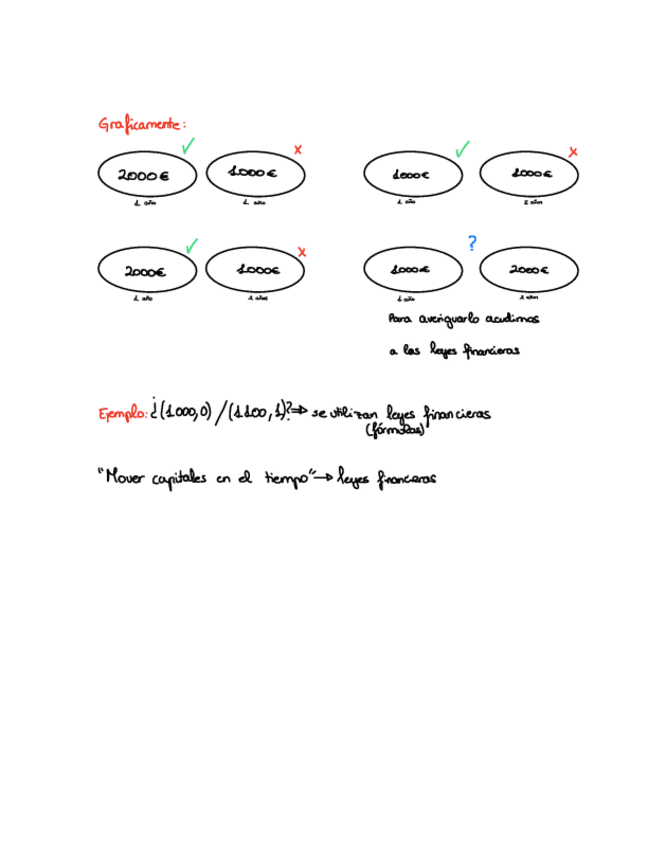 Graficamente:
✓ x ✓ x
2000€ 1000€ 1000€ 1000€
1 año 1 año 1 año 2 años
✓ x ?
2000€ 1000€ 1000€ 2000€
1 año años 1 año años
Para averiguarlo acudimos
a las leyes financieras
Ejemplo: ¿(1000,0) / (1100,1)? ⇒ se utilizan leyes financieras
(fórmulas)
"Mover capitales en el tiempo" → leyes financieras